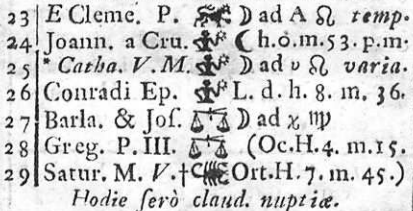 23 E Cleme. P. ♏ ☽ ad A ♌ temp.
24 Joann. a Cru. ♐ ☾ h.0.m.53.p.m.
25 * Catha. V. M. ♐ ☽ ad υ ♌ varia.
26 Conradi Ep. ♐ L. d. h. 8. m. 36.
27 Barla. & Jos. ♎ ☽ ad χ ♍
28 Greg. P. III. ♎ (Oc.H.4. m.15.
29 Satur. M. V.† ☾ ♏ Ort.H. 7. m. 45.)
Hodie ſerò claud. nuptiæ.